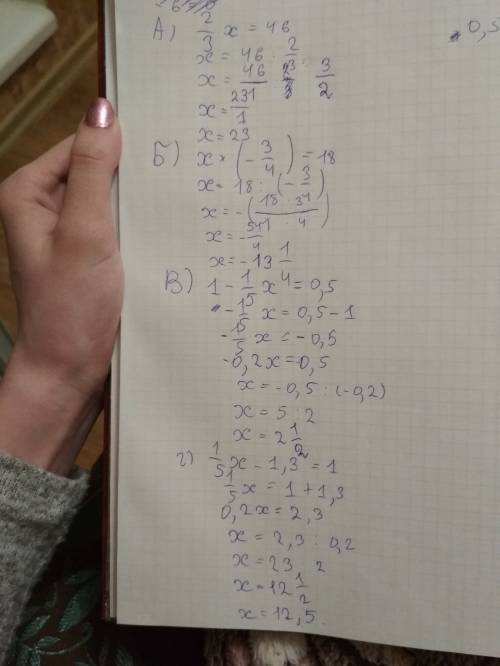 0,5
А) 2/3 x = 46
x = 46 : 2/3
x = 46/1 · 3/2
x = 231/1
x = 23
Б) x · (- 3/4) = 18
x = 18 : (- 3/4)
x = -(18 · 3 / 1 · 4)
x = - 54/4
x = -13 1/4
В) 1 - 1/5 x = 0,5
- 1/5 x = 0,5 - 1
- 1/5 x = - 0,5
-0,2x = -0,5
x = -0,5 : (-0,2)
x = 5 : 2
x = 2 1/2
г) 1/5 x - 1,3 = 1
1/5 x = 1 + 1,3
0,2x = 2,3
x = 2,3 : 0,2
x = 23 2
x = 12 1/2
x = 12,5.